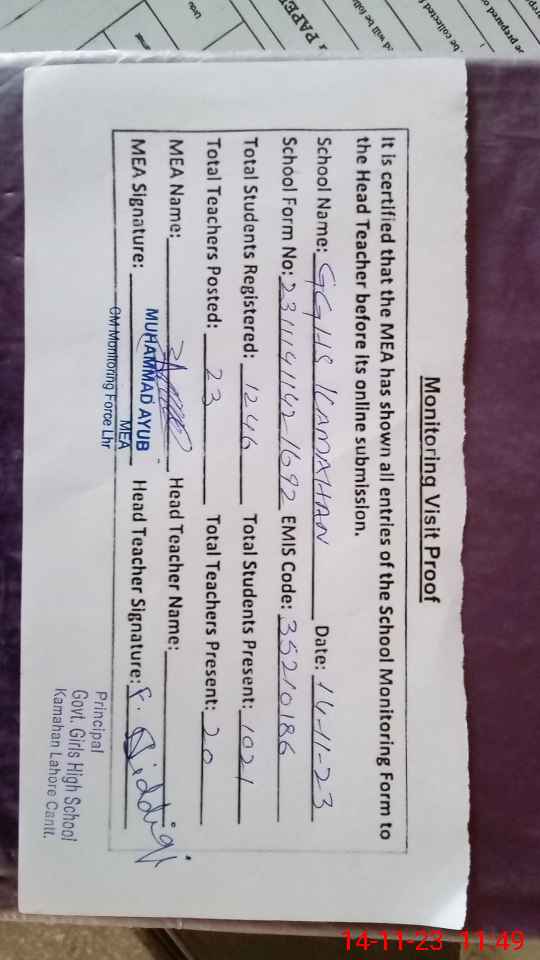 Monitoring Visit Proof
It is certified that the MEA has shown all entries of the School Monitoring Form to
the Head Teacher before its online submission.
School Name: GGHS KAMAHAN Date: 14-11-23
School Form No: 2311141142-1692 EMIS Code: 35210186
Total Students Registered: 1246 Total Students Present: 1021
Total Teachers Posted: 23 Total Teachers Present: 20
MEA Name: Head Teacher Name:
MEA Signature: Head Teacher Signature: Siddiqi
MUHAMMAD AYUB
MEA
CM Monitoring Force Lhr
Principal
Govt. Girls High School
Kamahan Lahore Cantt.
PAPE
be collected
be prepared
14-11-23 11:49